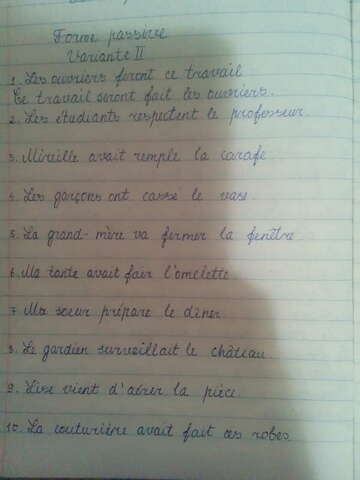 Forme passive
Variante II
1. Les ouvriers feront ce travail
Ce travail seront fait les ouvriers.
2. Les étudiants respectent le professeur.
3. Mireille avait remple la carafe
4. Les garçons ont cassé le vase
5. La grand-mère va fermer la fenêtre
6. Ma tante avait fair l'omelette
7. Ma soeur prépare le dîner
8. Le gardien surveillait le château
9. Lise vient d'aérer la pièce
10. La couturière avait fait ces robes